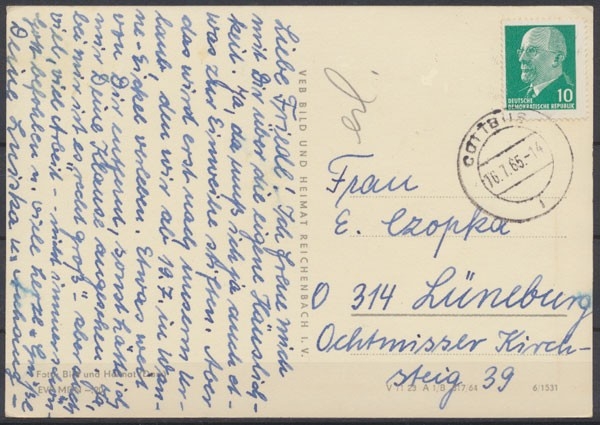 Liebe Friedl! Ich freu mich
mit Dir über die eigene Häuslich-
keit. Ja, da muß ich ja auch et-
was zur Einweihe stiften. Aber
das wird erst nach unserm Ur-
laub, den wir ab 19.7. in War-
ne-Eickel verleben. Etwas weit
von Dir entfernt, sonst hätt ich
mir Dein Hause angesehen. Ja,
bei mir ist es recht groß - aber auch
viel, viel Arbeit - nicht immer
Gott befohlen u. viele herzl. Grüße
Deine
VEB BILD UND HEIMAT REICHENBACH I. V.
Foto: Bild und Heimat
10
DEUTSCHE
DEMOKRATISCHE REPUBLIK
COTTBUS
16.7.65.-14
1
Frau
E. Czopka
O 314 Lüneburg
Ochtmisser Kirch-
steig 39
V 11 28 A 1 B 317 64 6/1531